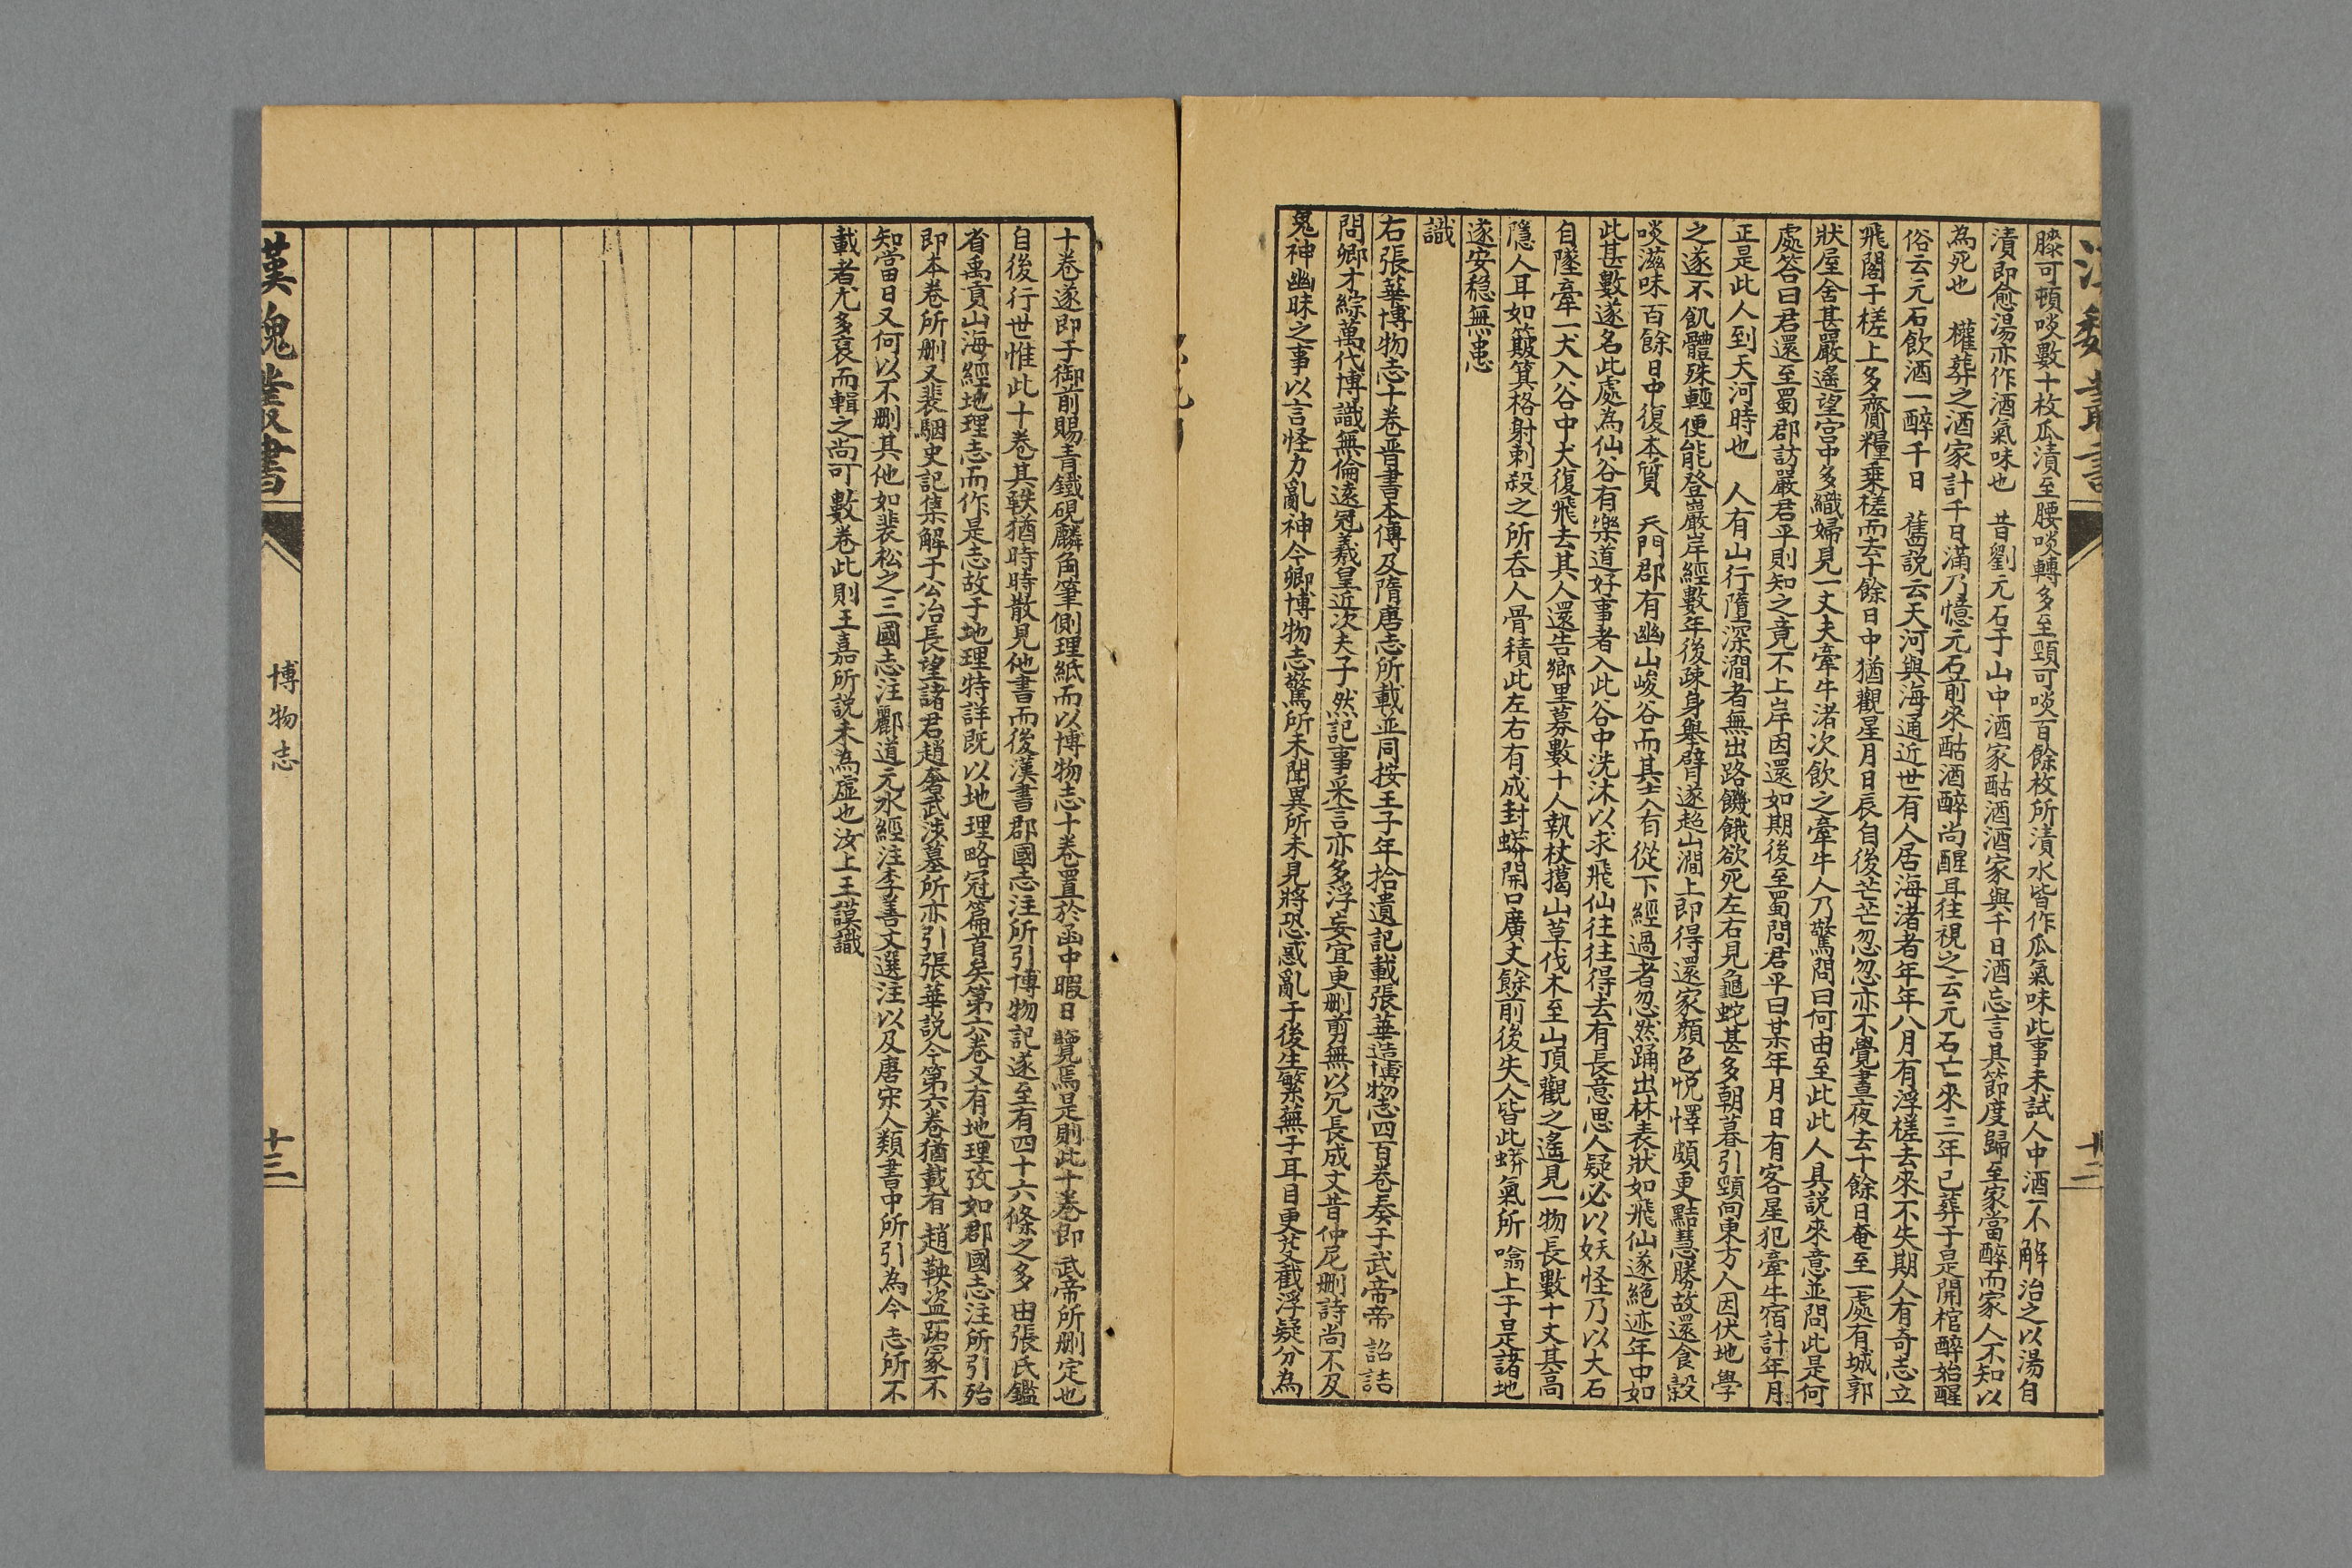 漢魏叢書
膝可頓啖數十枚瓜漬至腰啖轉多至頸可啖百餘枚所漬水皆作瓜氣味此事未試人中酒不解治之以湯自
漬即愈湯亦作酒氣味也　昔劉元石于山中酒家酤酒酒家與千日酒忘言其節度歸至家當醉而家人不知以
為死也　權葬之酒家計千日滿乃憶元石前來酤酒醉尚醒耳往視之云元石亡來三年已葬于是開棺醉始醒
俗云元石飲酒一醉千日　舊說云天河與海通近世有人居海渚者年年八月有浮槎去來不失期人有奇志立
飛閣于槎上多齎糧乘槎而去十餘日中猶觀星月日辰自後芒芒忽忽亦不覺晝夜去十餘日奄至一處有城郭
狀屋舍甚嚴遙望宮中多織婦見一丈夫牽牛渚次飲之牽牛人乃驚問曰何由至此此人具說來意並問此是何
處答曰君還至蜀郡訪嚴君平則知之竟不上岸因還如期後至蜀問君平曰某年月日有客星犯牽牛宿計年月
正是此人到天河時也　人有山行墮深澗者無出路饑餓欲死左右見龜蛇甚多朝暮引頸向東方人因伏地學
之遂不飢體殊輕便能登巖岸經數年後竦身舉臂遂超山澗上即得還家顏色悅懌頗更黠慧勝故還食穀
啖滋味百餘日中復本質　天門郡有幽山峻谷而其上人有從下經過者忽然踊出林表狀如飛仙遂絕迹年中如
此甚數遂名此處為仙谷有樂道好事者入此谷中洗沐以求飛仙往往得去有長意思人疑必以妖怪乃以大石
自墜牽一犬入谷中犬復飛去其人還告鄉里募數十人執杖揭山草伐木至山頂觀之遙見一物長數十丈其高
隱人耳如簸箕格射刺殺之所吞人骨積此左右有成封蟒開口廣丈餘前後失人皆此蟒氣所噏上于是諸地
遂安穩無患
識
右張華博物志十卷晉書本傳及隋唐志所載並同按王子年拾遺記載張華造博物志四百卷奏于武帝帝詔詰
問卿才綜萬代博識無倫遠冠羲皇近次夫子然記事采言亦多浮妄宜更刪剪無以冗長成文昔仲尼刪詩尚不及
鬼神幽昧之事以言怪力亂神今卿博物志驚所未聞異所未見將恐惑亂于後生繁蕪于耳目更芟截浮疑分為
十卷遂即于御前賜青鐵硯麟角筆側理紙而以博物志十卷置於函中暇日覽焉是則此十卷即武帝所刪定也
自後行世惟此十卷其軼猶時時散見他書而後漢書郡國志注所引博物記遂至有四十六條之多由張氏鑑
省禹貢山海經地理志而作是志故于地理特詳既以地理略冠篇首矣第六卷又有地理攷如郡國志注所引殆
即本卷所刪又裴駰史記集解于公冶長望諸君趙奢武涉墓所亦引張華說今第六卷猶載有趙鞅盜跖冢不
知當日又何以不刪其他如裴松之三國志注酈道元水經注李善文選注以及唐宋人類書中所引為今志所不
載者尤多裒而輯之尚可數卷此則王嘉所說未為虛也汝上王謨識
漢魏叢書
博物志
十三